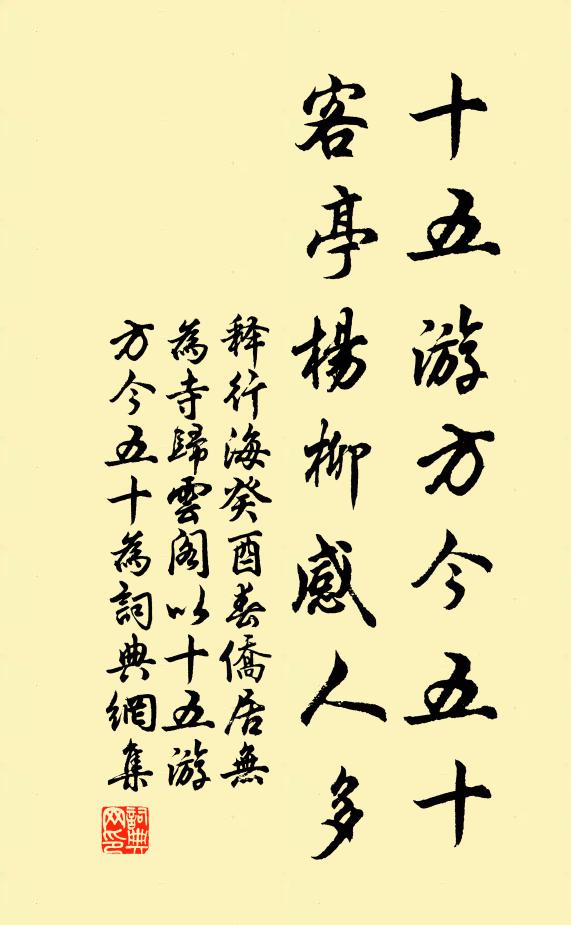 十五游方今五十
客亭楊柳感人多
释行海癸酉春僑居無
為寺歸雲閣以十五游
方今五十為詞典網集
詞典
网印